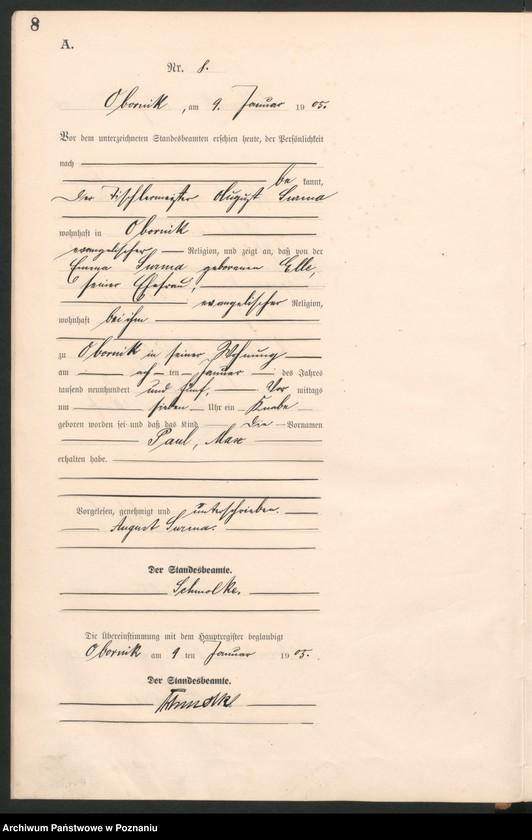 8
A.
Nr. 8.
Obornik, am 9. Januar 1905.
Vor dem unterzeichneten Standesbeamten erschien heute, der Persönlichkeit
nach
be kannt,
der Tischlermeister August Surma
wohnhaft in Obornik
evangelischer Religion, und zeigt an, daß von der
Emma Surma geborenen Elle,
seiner Ehefrau,
evangelischer Religion,
wohnhaft bei ihm
zu Obornik in seiner Wohnung
am ach ten Januar des Jahres
tausend neunhundert und fünf, Vor mittags
um sieben Uhr ein Knabe
geboren worden sei und daß das Kind die Vornamen
Paul, Max
erhalten habe.
Vorgelesen, genehmigt und unterschrieben.
August Surma.
Der Standesbeamte.
Schmolke.
Die Übereinstimmung mit dem Hauptregister beglaubigt
Obornik am 9 ten Januar 1905.
Der Standesbeamte.
Archiwum Państwowe w Poznaniu